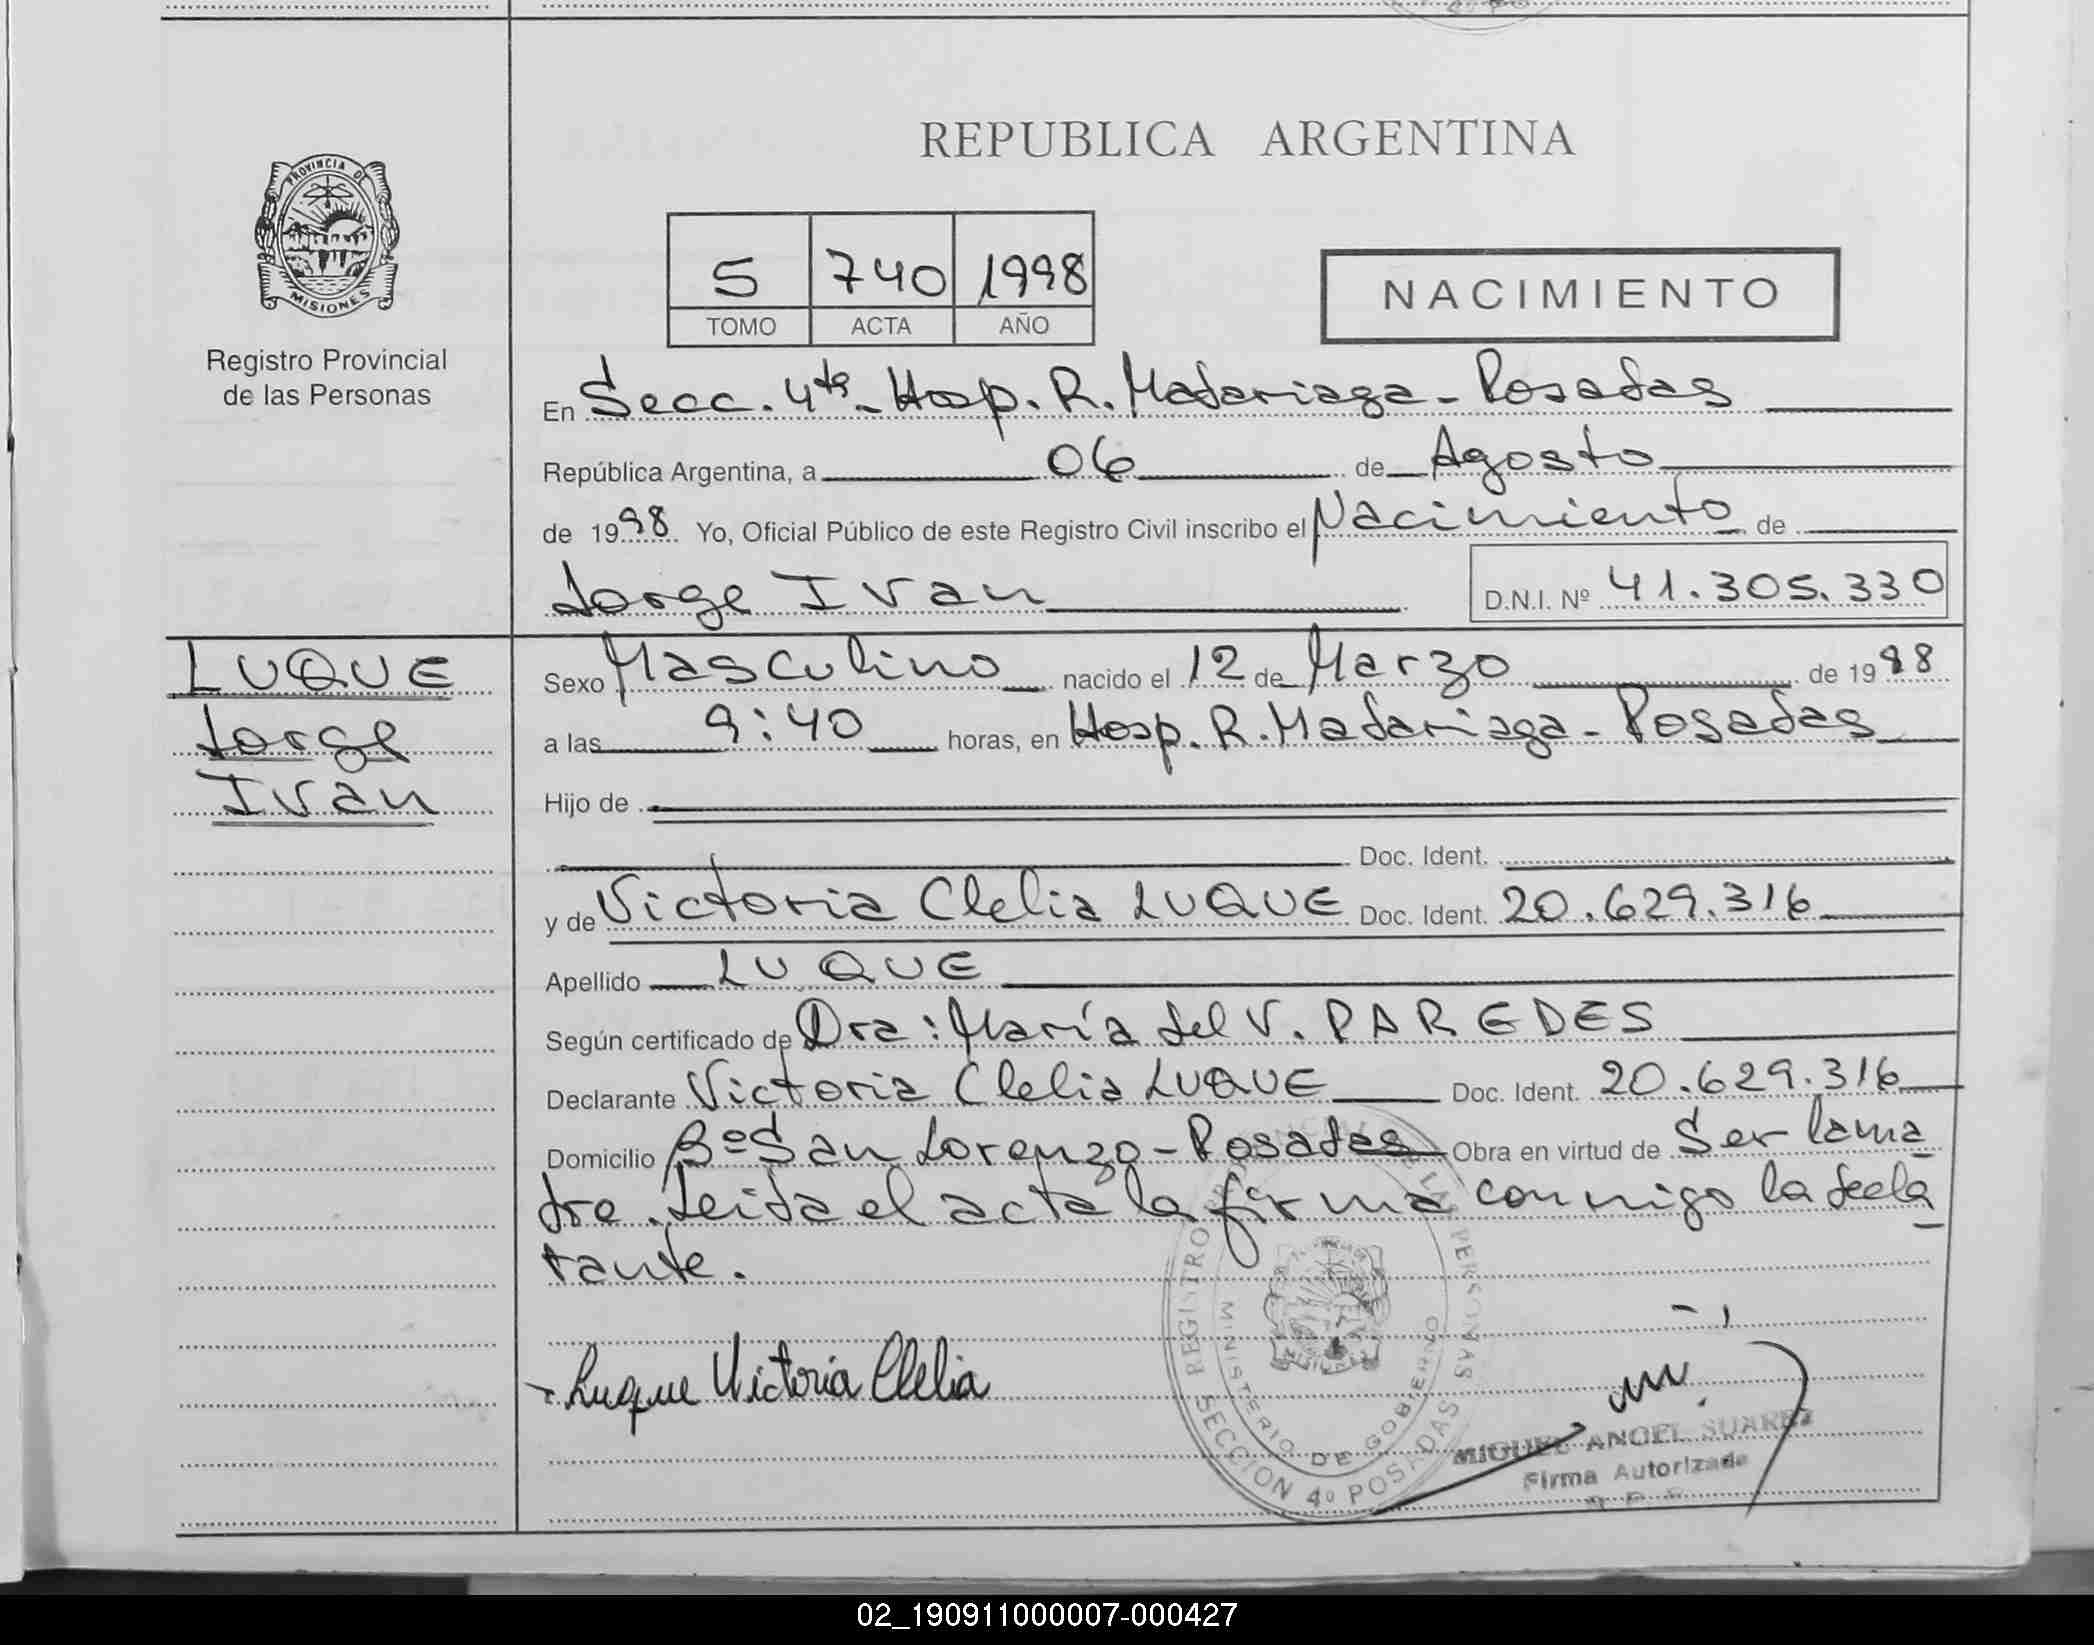 REPUBLICA ARGENTINA
PROVINCIA DE
MISIONES
Registro Provincial
de las Personas
5 740 1998
TOMO ACTA AÑO
NACIMIENTO
En Secc. 4ta - Hosp. R. Madariaga - Posadas
República Argentina, a 06 de Agosto
de 1998 Yo, Oficial Público de este Registro Civil inscribo el Nacimiento de
Jorge Ivan D.N.I. Nº 41.305.330
LUQUE
Jorge
Ivan
Sexo Masculino nacido el 12 de Marzo de 1998
a las 9:40 horas, en Hosp. R. Madariaga - Posadas
Hijo de
Doc. Ident.
y de Victoria Clelia LUQUE Doc. Ident. 20.629.316
Apellido LUQUE
Según certificado de Dra: María del V. PAREDES
Declarante Victoria Clelia LUQUE Doc. Ident. 20.629.316
Domicilio Bº San Lorenzo - Posadas Obra en virtud de Ser la ma
dre. Leida el acta la firma conmigo la decla
rante.
Luque Victoria Clelia
REGISTRO PROVINCIAL DE LAS PERSONAS
MINISTERIO DE GOBIERNO
SECCION 4º POSADAS
MIGUEL ANGEL SUAREZ
Firma Autorizada
02_190911000007-000427